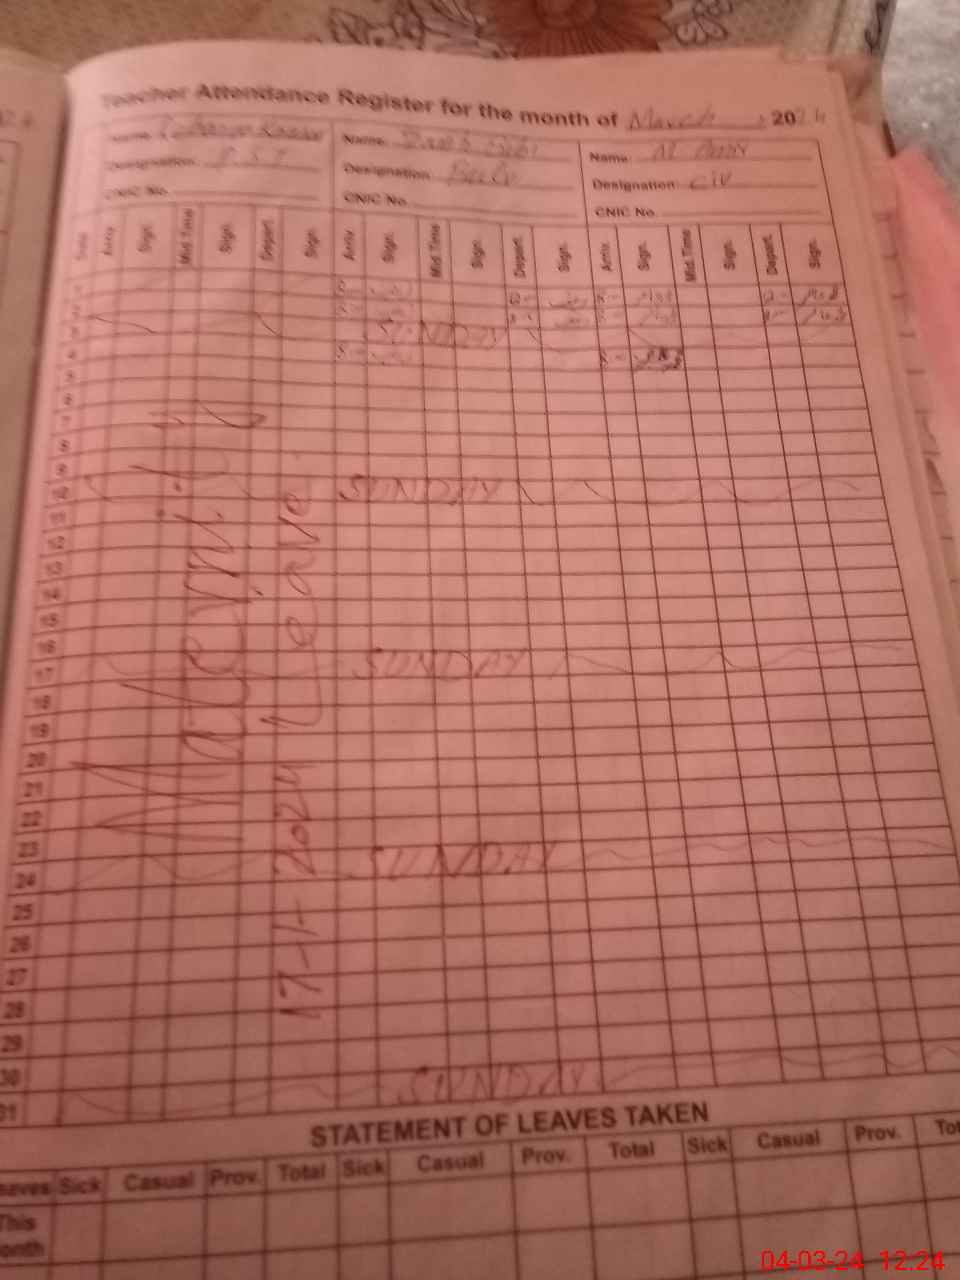 Teacher Attendance Register for the month of March 2024
Name. Name. Name. M
Designation. P.S.T Designation. Designation. Civ
CNIC No. CNIC No. CNIC No.
Date Arriv. Sign. Mid.Time Sign. Depart. Sign. Arriv. Sign. Mid.Time Sign. Depart. Sign. Arriv. Sign. Mid.Time Sign. Depart. Sign.
1
2
3 SUNDAY
4
5
6
7
8
9
10 SUNDAY
11
12
13
14
15
16
17 SUNDAY
18
19
20
21
22
23
24 SUNDAY
25
26
27
28
29
30
31 SUNDAY
Maternity
17-1-2024 Leave.
STATEMENT OF LEAVES TAKEN
eaves Sick Casual Prov. Total Sick Casual Prov. Total Sick Casual Prov. Tot
This
onth
04-03-24 12:24